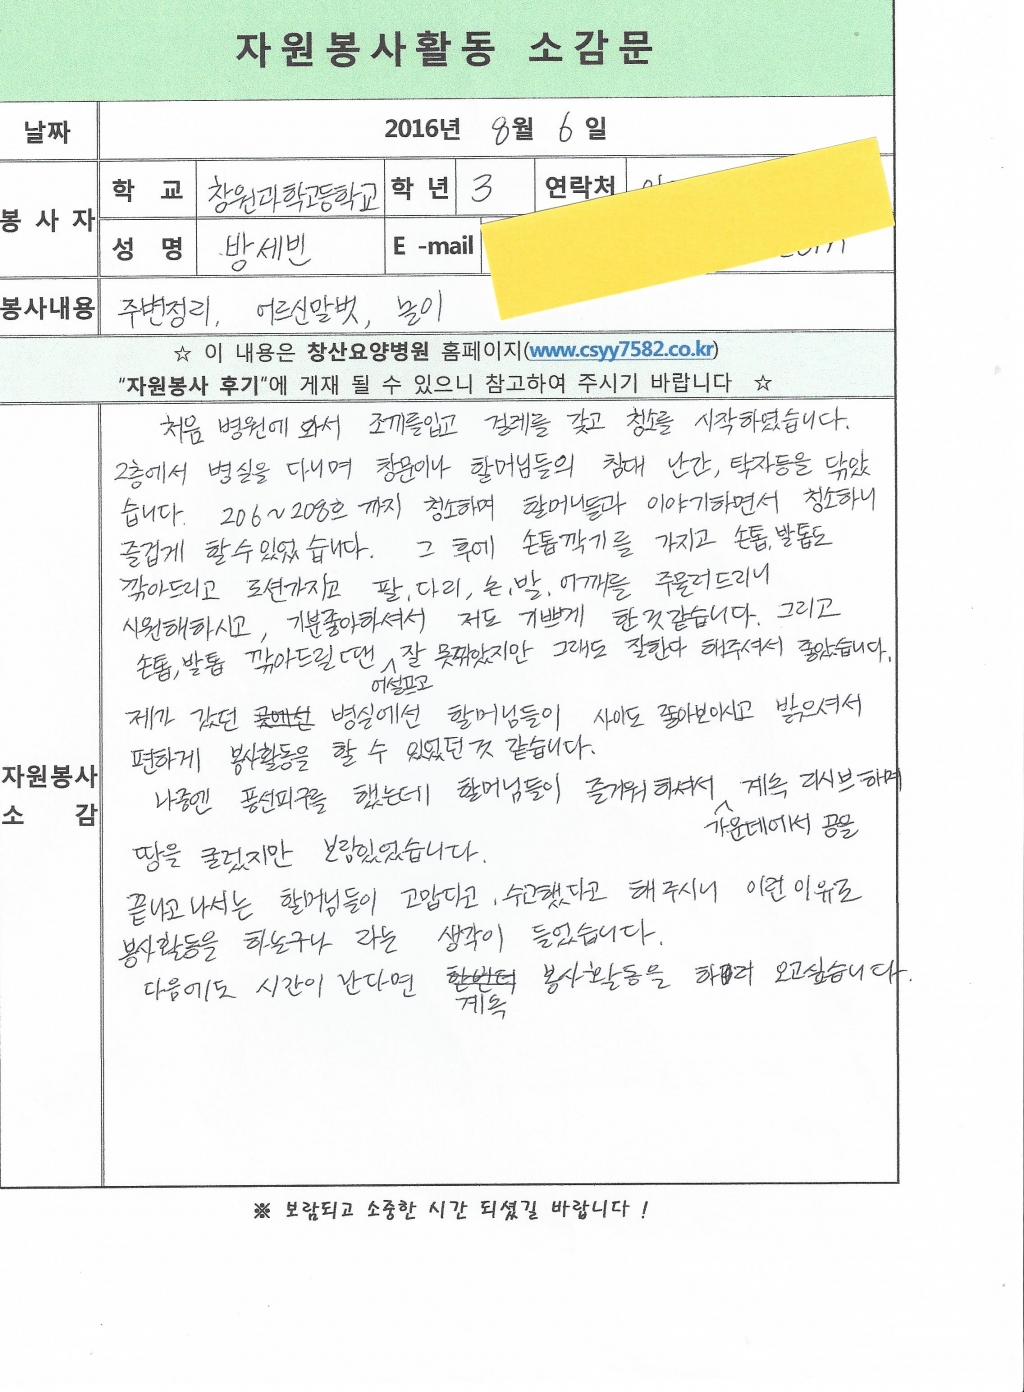 자원봉사활동 소감문
날짜 2016년 8월 6일
봉사자 학 교 창원과학고등학교 학 년 3 연락처
성 명 방세빈 E -mail com
봉사내용 주변정리, 어르신말벗, 놀이
☆ 이 내용은 창산요양병원 홈페이지(www.csyy7582.co.kr)
"자원봉사 후기"에 게재 될 수 있으니 참고하여 주시기 바랍니다 ☆
자원봉사 소 감
처음 병원에 와서 조끼를입고 걸레를 갖고 청소를 시작하였습니다.
2층에서 병실을 다니며 창문이나 할머님들의 침대 난간, 탁자등을 닦았
습니다. 206~208호 까지 청소하며 할머니들과 이야기하면서 청소하니
즐겁게 할수있었습니다. 그 후에 손톱깍기를 가지고 손톱,발톱도
깎아드리고 로션가지고 팔,다리,손,발,어깨를 주물러드리니
시원해하시고, 기분좋아하셔서 저도 기쁘게 한것같습니다. 그리고
손톱,발톱 깎아드릴땐 잘 못깎았지만 그래도 잘한다 해주셔서 좋았습니다.
어설프고
제가 갔던 곳에선 병실에선 할머님들이 사이도 좋아보이시고 밝으셔서
편하게 봉사활동을 할 수 있었던것 같습니다.
나중엔 풍선피구를 했는데 할머님들이 즐거워하셔서 계속 리시브하며
가운데에서 공을
땅을 굴렀지만 보람있었습니다.
끝나고나서는 할머님들이 고맙다고, 수고했다고 해주시니 이런이유로
봉사활동을 하는구나 라는 생각이 들었습니다.
다음에도 시간이 난다면 한번더 봉사활동을 하러 오고싶습니다.
계속
※ 보람되고 소중한 시간 되셨길 바랍니다 !